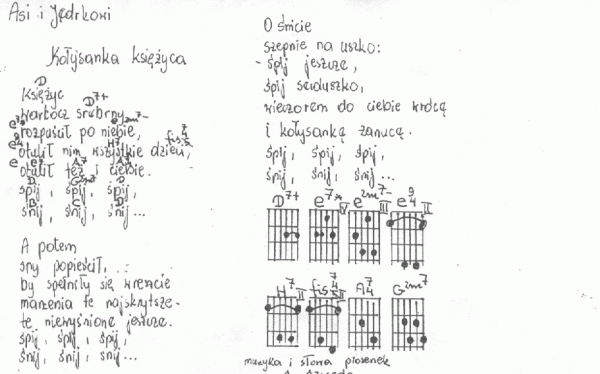 Asi i Jędrkowi
Kołysanka księżyca
D
Księżyc
D7+
warkocz srebrny
rozpuścił po niebie,
otulił nim wszystkie dzieci,
otulił też i ciebie.
śpij, śpij, śpij,
śnij, śnij, śnij...
A potem
sny popieścił,
by spełniły się wreszcie
marzenia te najskrytsze
te niewyśnione jeszcze.
śpij, śpij, śpij,
śnij, śnij, śnij...
O świcie
szepnie na uszko:
- śpij jeszcze,
śpij serduszko,
wieczorem do ciebie wrócę
i kołysankę zanucę.
śpij, śpij, śpij,
śnij, śnij, śnij...
D7+ e7 V e2m7- II e9/4 II
H7 II fis7/4 II A7/4 G2m7
muzyka i słowa piosenek